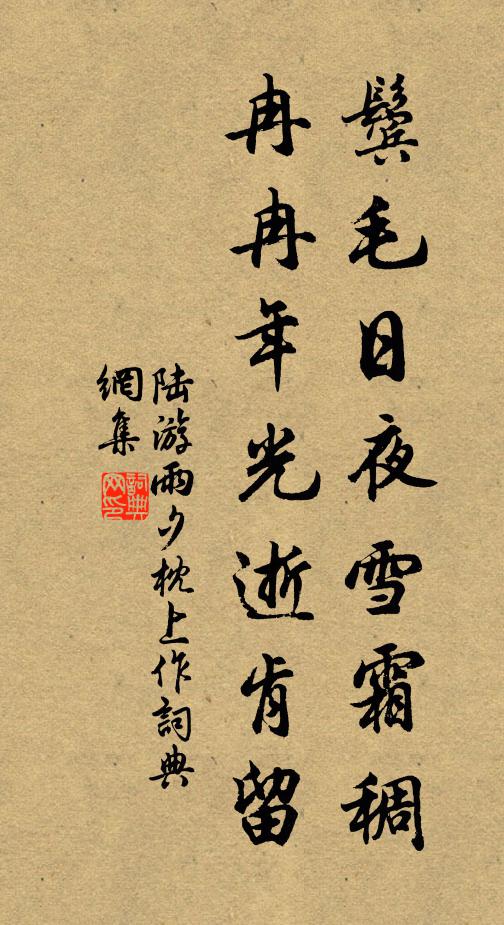 鬓毛日夜雪霜稠
冉冉年光逝肯留
陆游雨夕枕上作詞典
網集
詞典网印